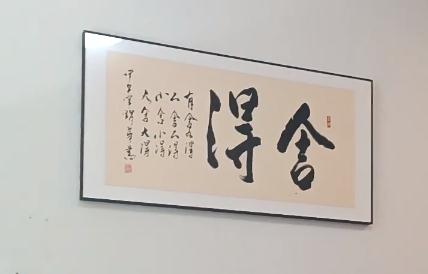 舍得
有舍有得
不舍不得
小舍小得
大舍大得